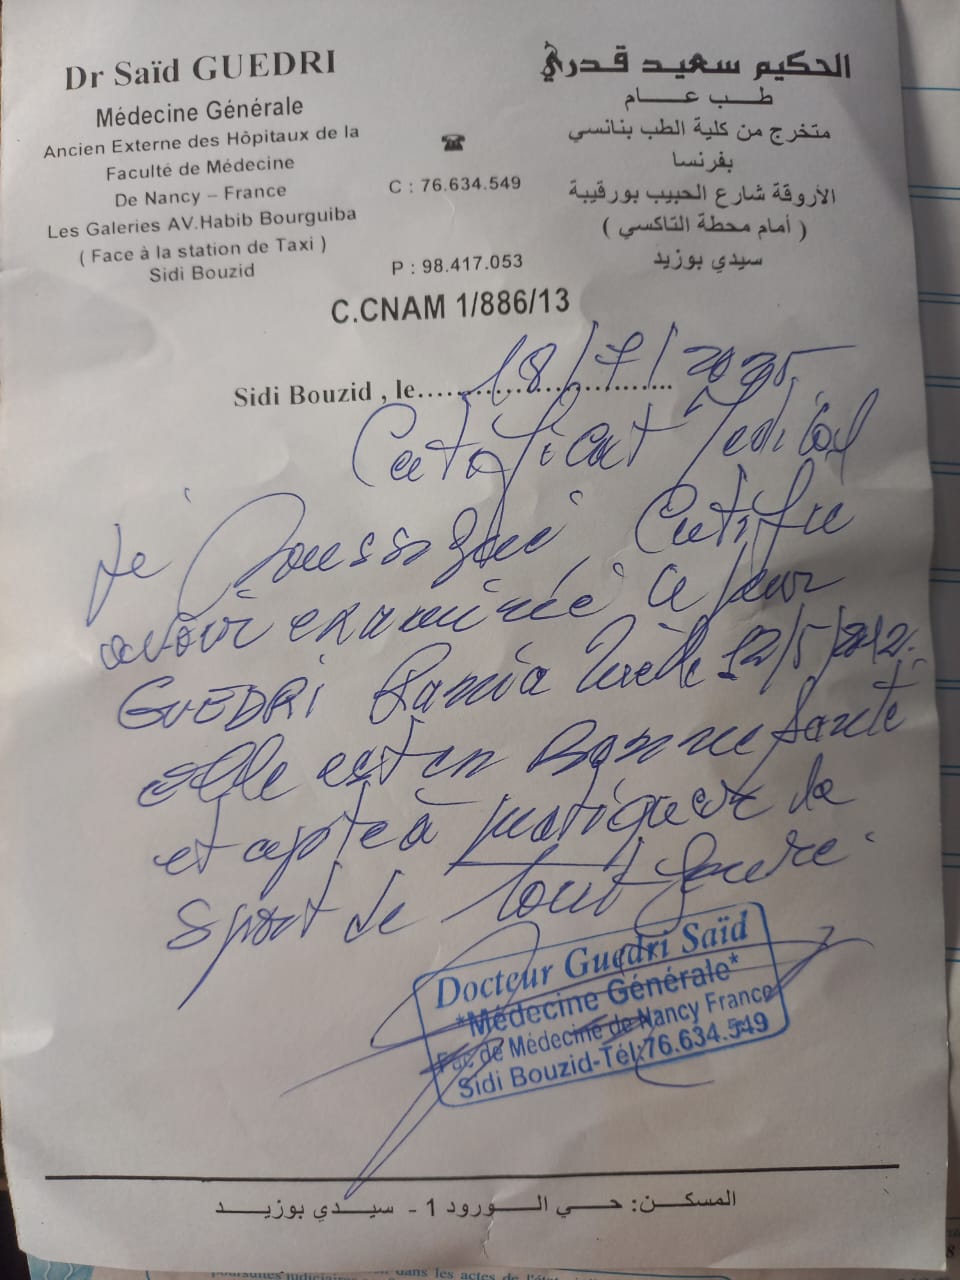 Dr Saïd GUEDRI
Médecine Générale
Ancien Externe des Hôpitaux de la
Faculté de Médecine
De Nancy – France
Les Galeries AV.Habib Bourguiba
( Face à la station de Taxi )
Sidi Bouzid
☎
C : 76.634.549
P : 98.417.053
الحكيم سعيد قدري
طب عام
متخرج من كلية الطب بنانسي
بفرنسا
الأروقة شارع الحبيب بورقيبة
( أمام محطة التاكسي )
سيدي بوزيد
C.CNAM 1/886/13
Sidi Bouzid , le 18/7/2025
Certificat Médical
Je soussigné, Certifie
avoir examinée ce jour
GUEDRI Rania née le 12/5/2012.
elle est en Bonne santé
et apte à pratiquer le
sport de tout genre.
Docteur Guedri Saïd
*Médecine Générale*
Fac de Médecine de Nancy France
Sidi Bouzid-Tél:76.634.549
المسكن: حي الورود 1 - سيدي بوزيد
dans les actes de l'état